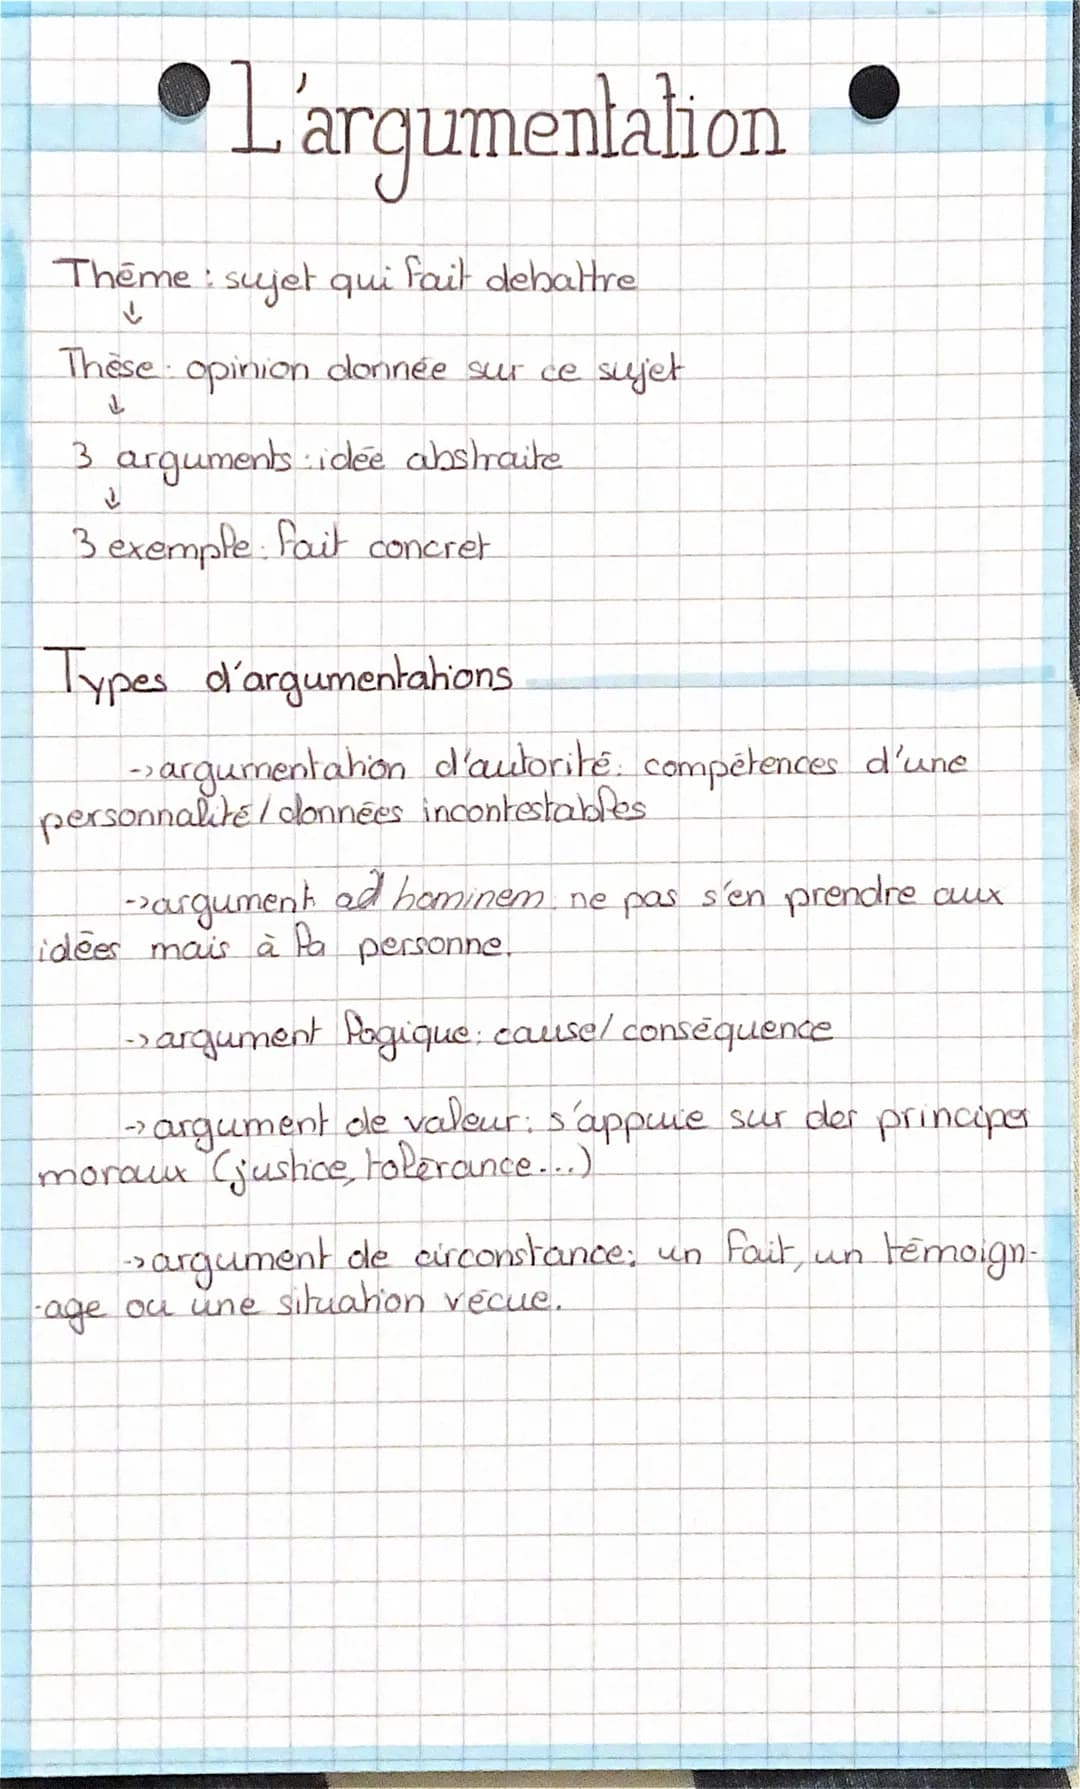 L'argumentation
Thême : sujet qui fait debattre
↓
Thèse : opinion donnée sur ce sujet
↓
3 arguments : idée abstraite
↓
3 exemple : fait concret
Types d'argumentations
-> argumentation d'autorité : compétences d'une
personnalité / données incontestables
-> argument ad hominem : ne pas s'en prendre aux
idées mais à la personne.
-> argument logique : cause / conséquence
-> argument de valeur : s'appuie sur des principes
moraux (justice, tolérance...)
-> argument de circonstance : un fait, un témoign-
-age ou une situation vécue.